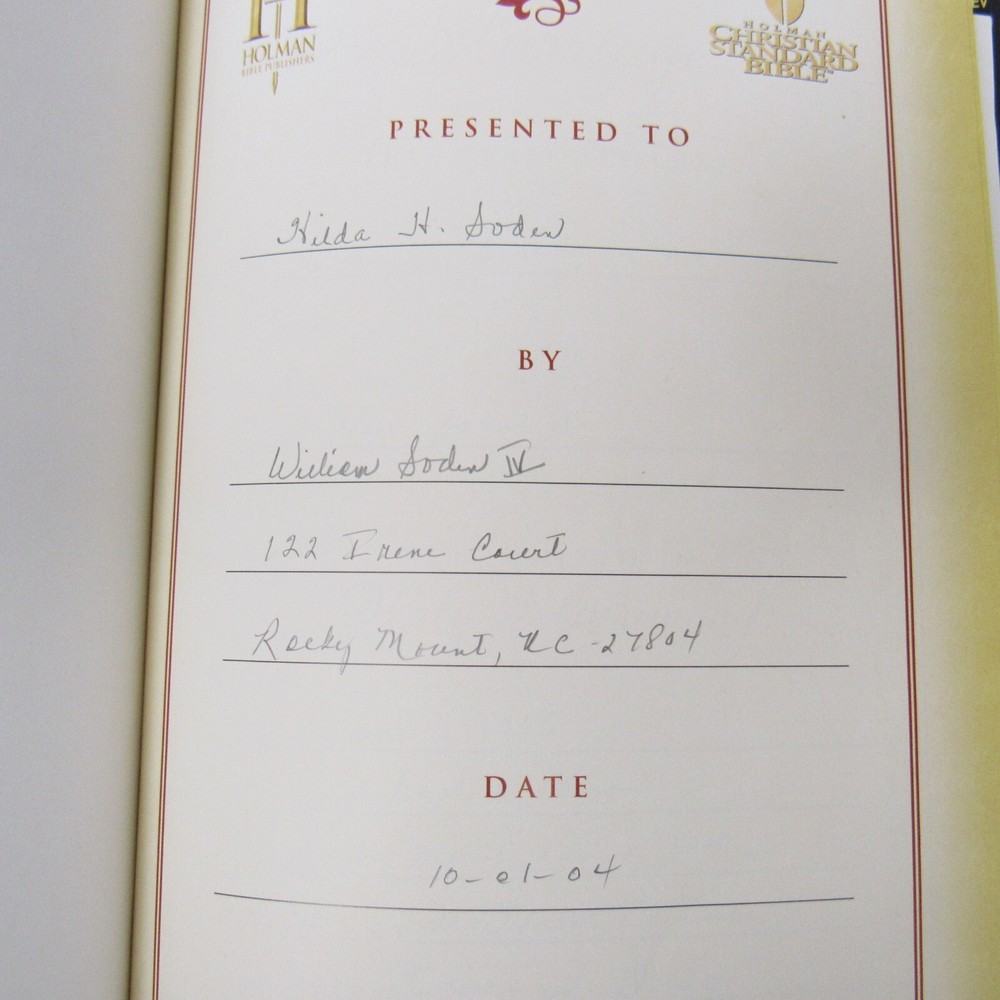 HOLMAN
BIBLE PUBLISHERS
HOLMAN
CHRISTIAN
STANDARD
BIBLE™
PRESENTED TO
Hilda H. Soden
BY
William Soden IV
122 Irene Court
Rocky Mount, NC - 27804
DATE
10-01-04